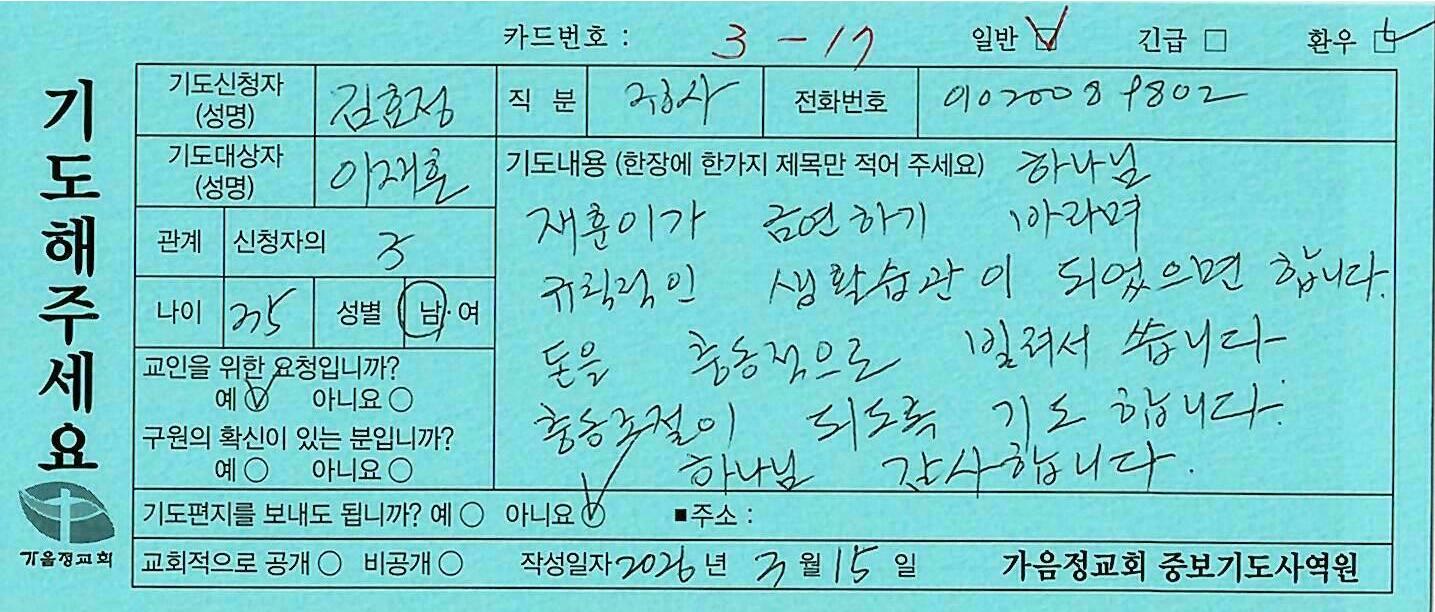 카드번호 : 3-17 일반 ☑ 긴급 □ 환우 ☑
기도해주세요
기도신청자 (성명) 김효정 직 분 집사 전화번호 01020089802
기도대상자 (성명) 이재훈 기도내용 (한장에 한가지 제목만 적어 주세요) 하나님
재훈이가 금연하기 바라며
관계 신청자의 子
규칙적인 생활습관이 되었으면 합니다.
나이 35 성별 남·여
돈을 충동적으로 빌려서 씁니다
교인을 위한 요청입니까?
예 아니요 ○
충동조절이 되도록 기도 합니다.
구원의 확신이 있는 분입니까?
예 ○ 아니요 ○
하나님 감사합니다.
기도편지를 보내도 됩니까? 예 ○ 아니요 ■주소 :
가음정교회
교회적으로 공개 ○ 비공개 ○ 작성일자 2026 년 3 월 15 일 가음정교회 중보기도사역원